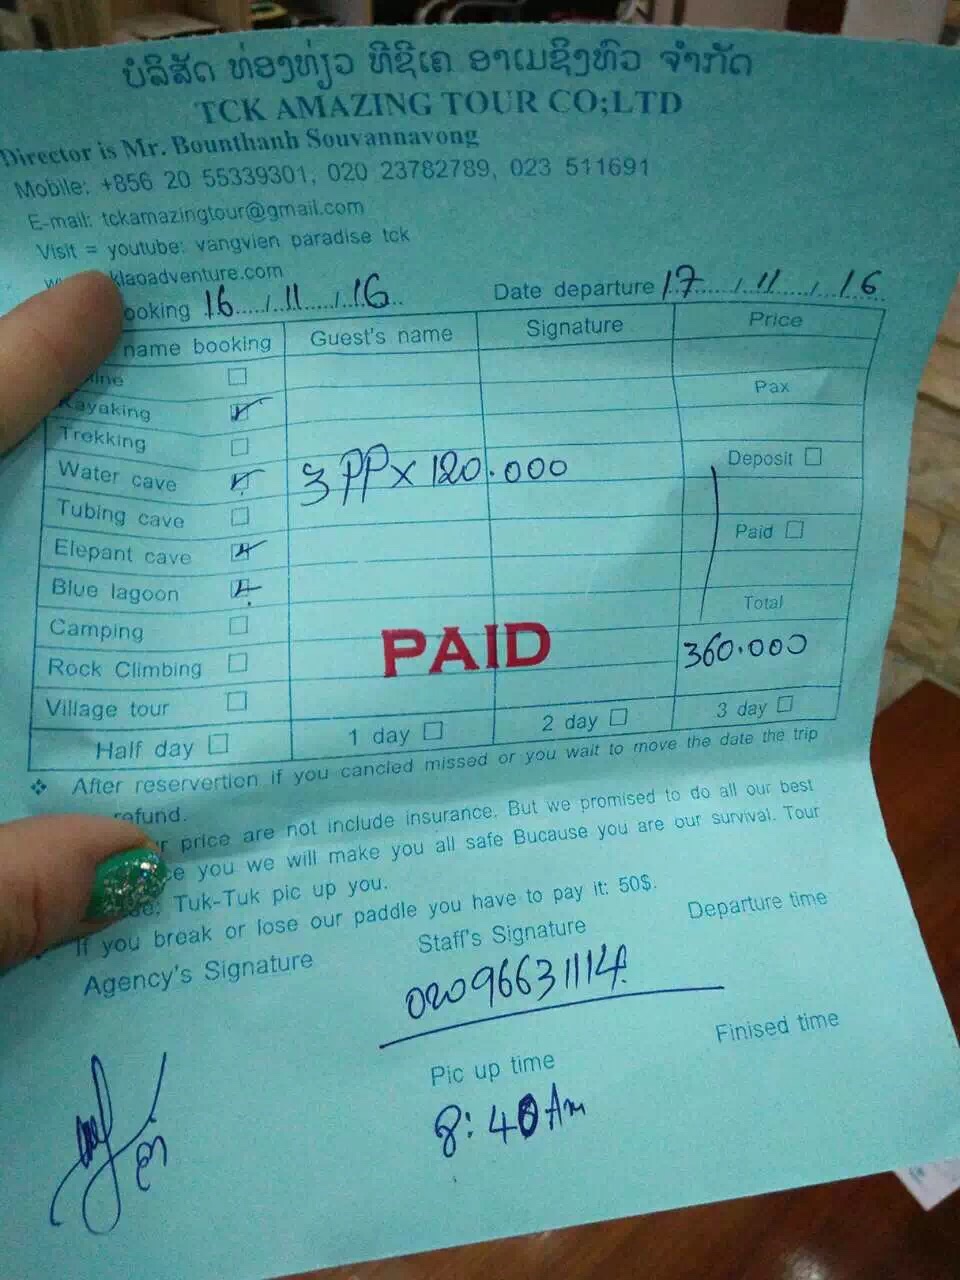 ບໍລິສັດ ທ່ອງທ່ຽວ ທີຊີເຄ ອາເມຊິງທົວ ຈຳກັດ
TCK AMAZING TOUR CO;LTD
Director is Mr. Bounthanh Souvannavong
Mobile: +856 20 55339301, 020 23782789, 023 511691
E-mail: tckamazingtour@gmail.com
Visit = youtube: vangvien paradise tck
klaoadventure.com
ooking 16 / 11 / 16 Date departure 17 / 11 / 16
name booking Guest's name Signature Price
Kayaking
Pax
Trekking
Water cave 3 PP x 120.000 Deposit
Tubing cave
Elepant cave Paid
Blue lagoon
Camping Total
PAID
Rock Climbing 360.000
Village tour
Half day 1 day 2 day 3 day
❖ After reservertion if you cancled missed or you wait to move the date the trip
refund.
price are not include insurance. But we promised to do all our best
you we will make you all safe Bucause you are our survival. Tour
Tuk-Tuk pic up you.
If you break or lose our paddle you have to pay it: 50$.
Agency's Signature Staff's Signature Departure time
02096631114
Pic up time Finised time
8:40 Am